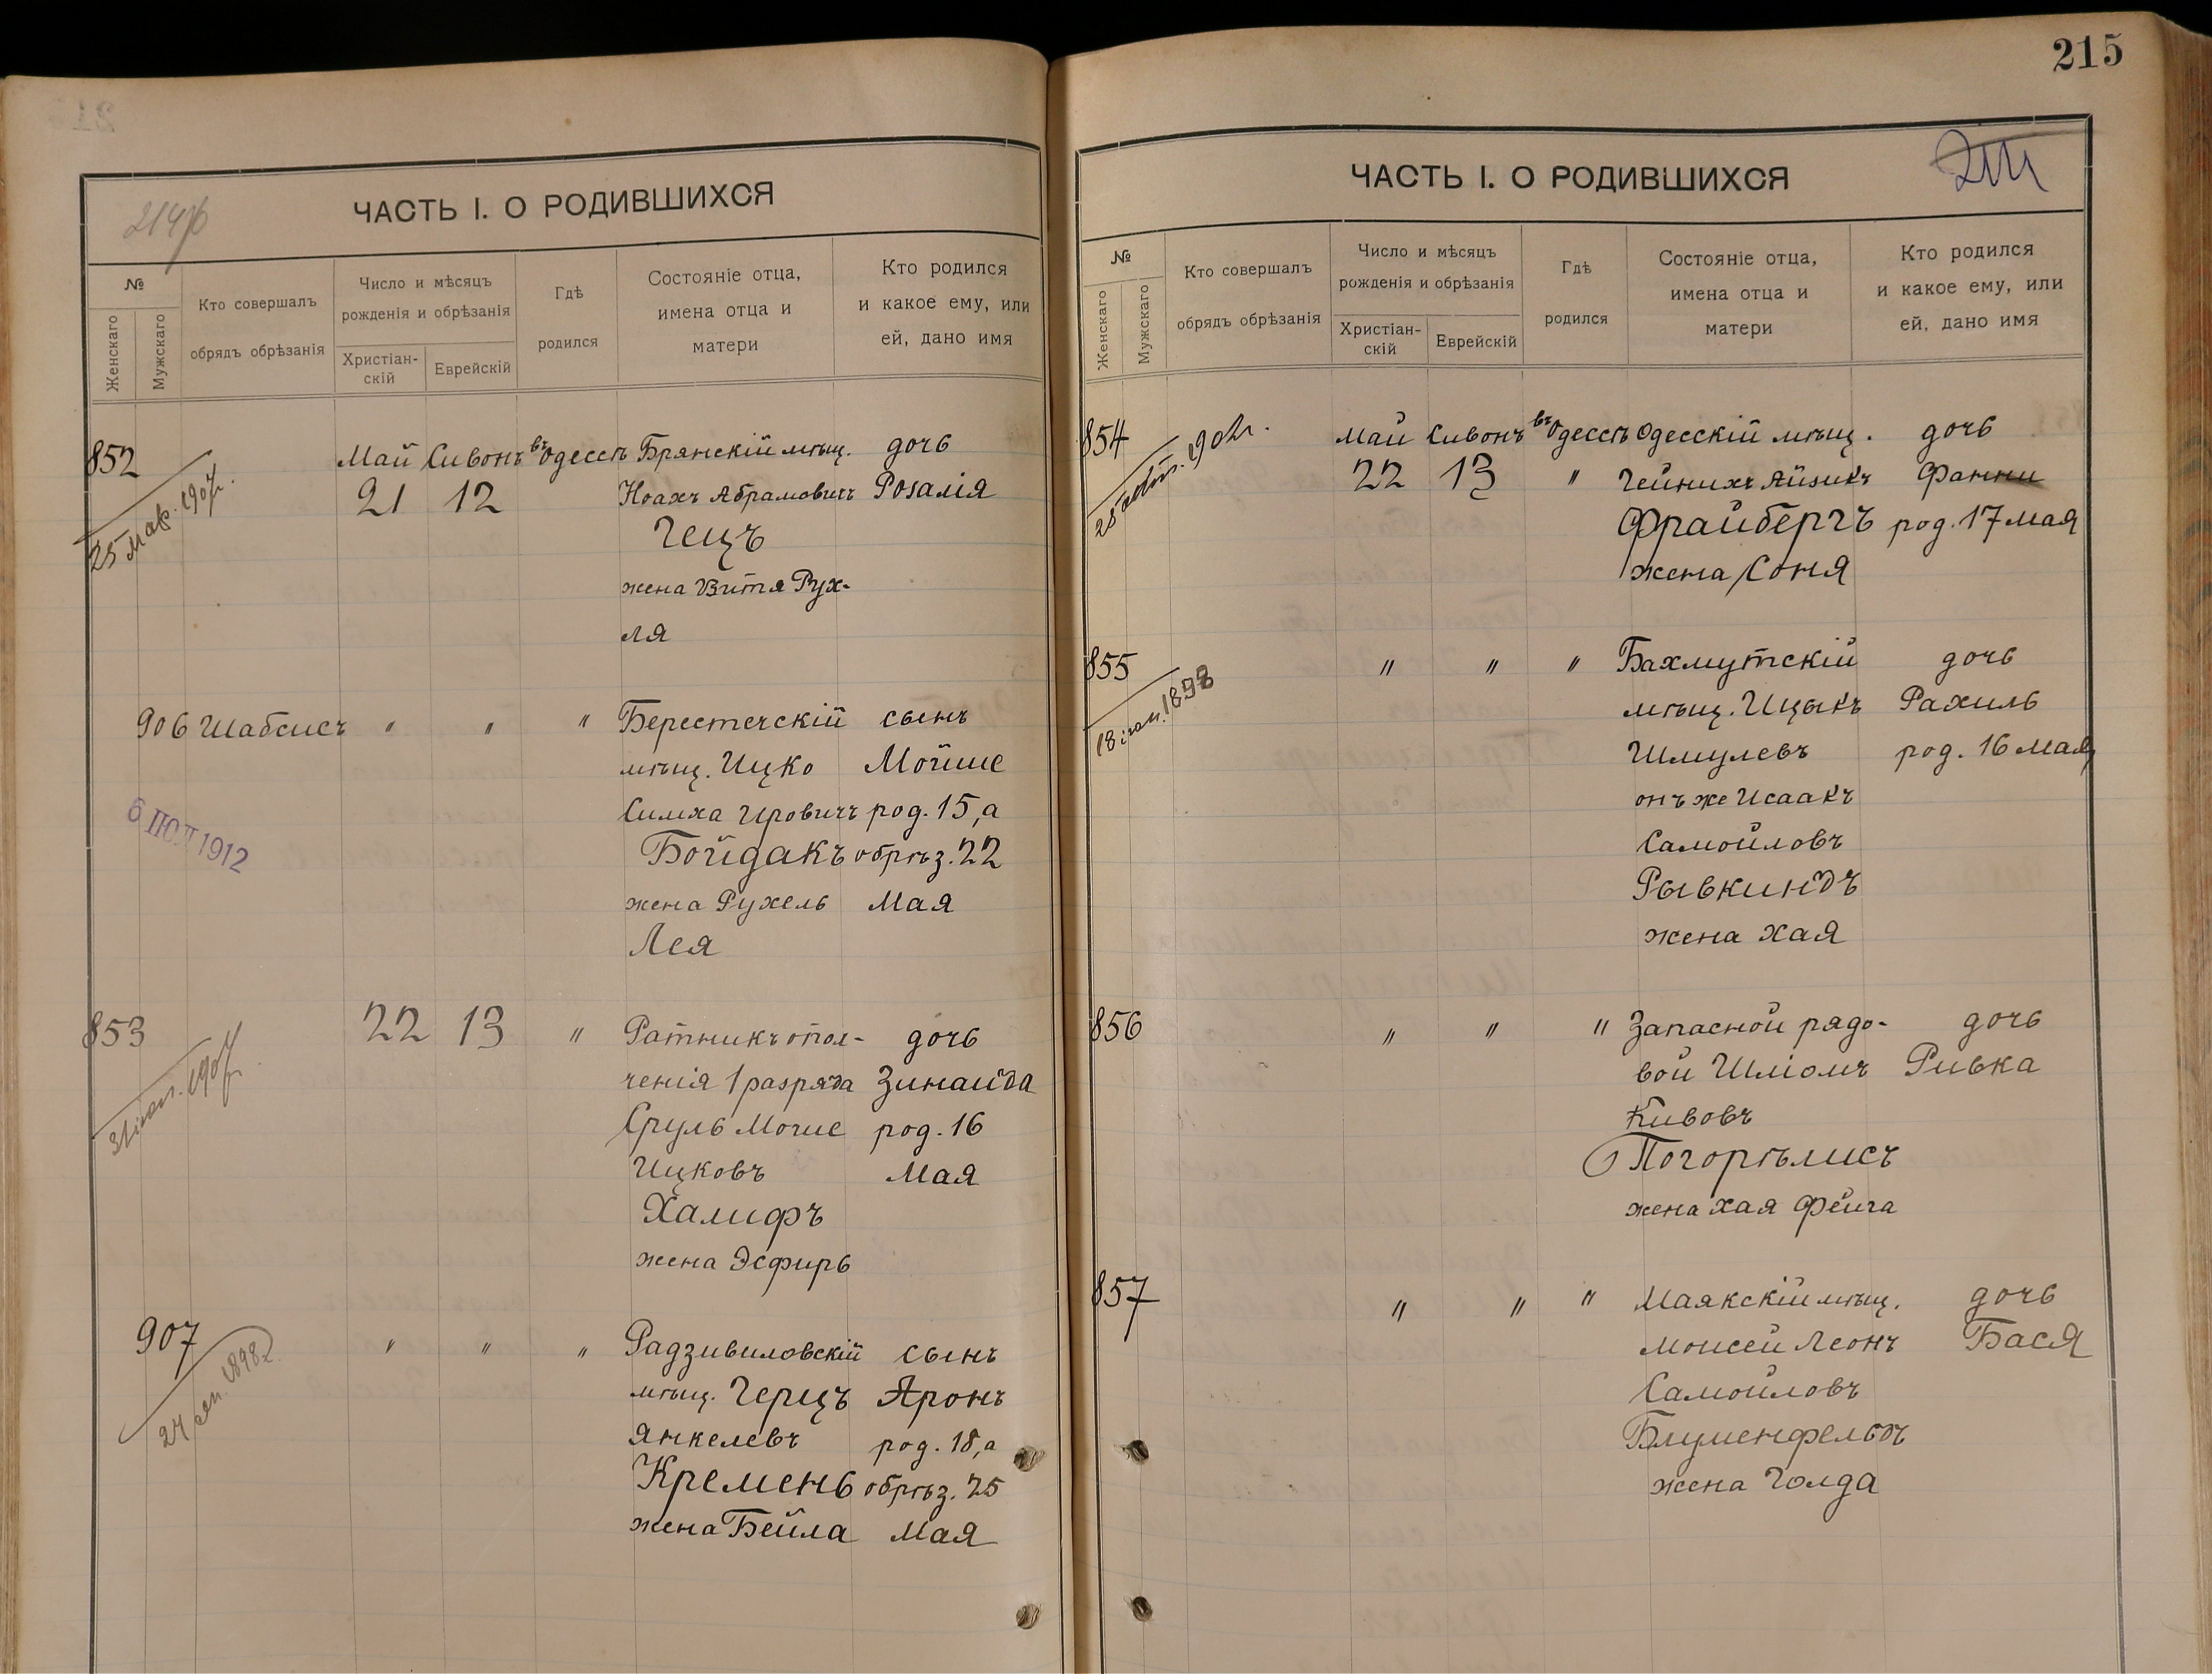 215
ЧАСТЬ I. О РОДИВШИХСЯ
№
Женскаго
Мужскаго
Кто совершалъ
обрядъ обрѣзанія
Число и мѣсяцъ
рожденія и обрѣзанія
Христіан-
скій
Еврейскій
Гдѣ
родился
Состояніе отца,
имена отца и
матери
Кто родился
и какое ему, или
ей, дано имя
852 Май Сивонъ въ Одессѣ Брянскій мѣщ. дочь
21 12 Ноахъ Абрамовичъ Розалія
Гецъ
жена Витя Рух-
ля
25 мар. 1907г.
906 Шабсисъ " " " Берестечскій сынъ
мѣщ. Ицко Мойше
Симха Ировичъ род. 15, а
Бойдакъ обрѣз. 22
жена Рухель Мая
Лея
6 ІЮЛ 1912
853 22 13 " Ратникъ опол- дочь
ченія 1 разряда Зинаида
Сруль Моше род. 16
Ицковъ Мая
Халифъ
жена Эсфирь
907 " " " Радзивиловскій сынъ
мѣщ. Герцъ Аронъ
Янкелевъ род. 18, а
Кремень обрѣз. 25
жена Бейла Мая
1898г.
ЧАСТЬ I. О РОДИВШИХСЯ
№
Женскаго
Мужскаго
Кто совершалъ
обрядъ обрѣзанія
Число и мѣсяцъ
рожденія и обрѣзанія
Христіан-
скій
Еврейскій
Гдѣ
родился
Состояніе отца,
имена отца и
матери
Кто родился
и какое ему, или
ей, дано имя
854 Май Сивонъ въ Одессѣ Одесскій мѣщ. дочь
22 13 " Гейнихъ Айзикъ Фанни
Фрайбергъ род. 17 мая
жена Соня
855 " " " Бахмутскій дочь
мѣщ. Ицыкъ Рахиль
Шмулевъ род. 16 мая
онъ же Исаакъ
Самойловъ
Рывкиндъ
жена Хая
856 " " " Запасной рядо- дочь
вой Шліомъ Ривка
Кивовъ
Погорѣлисъ
жена Хая Фейга
857 " " " Маякскій мѣщ. дочь
Моисей Леонъ Бася
Самойловъ
Блуменфельдъ
жена Голда